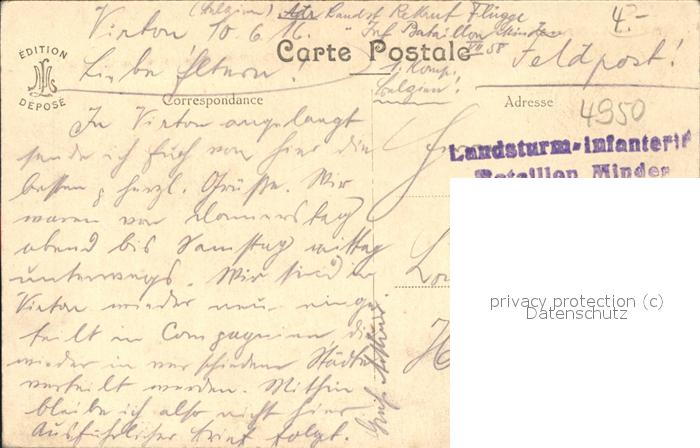 (Belgien) Adr. Landst. Rekrut Flügge
4.-
Virton 10.6.16. Inf. Bataillon Minden
VII 58
ÉDITION
DÉPOSÉ
Carte Postale
Feldpost!
Liebe Eltern!
1. Komp.
Belgien!
Correspondance
Adresse
4950
In Virton angelangt
sende ich Euch von hier die
besten, herzl. Grüße. Wir
waren von Donnerstag
abend bis Samstag mittag
unterwegs. Wir sind in
Virton wieder neu einge-
teilt in Compagnien, die
wieder in verschiedene Städte
verteilt werden. Mithin
bleibe ich also nicht hier.
Ausführlicher Brief folgt.
Gruß Arthur
Landsturm-Infanterie
Bataillon Minden
privacy protection (c)
Datenschutz